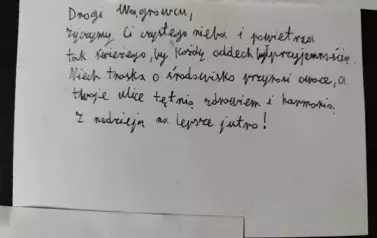 Drogi Wągrowcu,
życzymy Ci czystego nieba i powietrza
tak świeżego, by każdy oddech był przyjemnością.
Niech troska o środowisko przynosi owoce, a
twoje ulice tętnią zdrowiem i harmonią.
Z nadzieją na lepsze jutro!